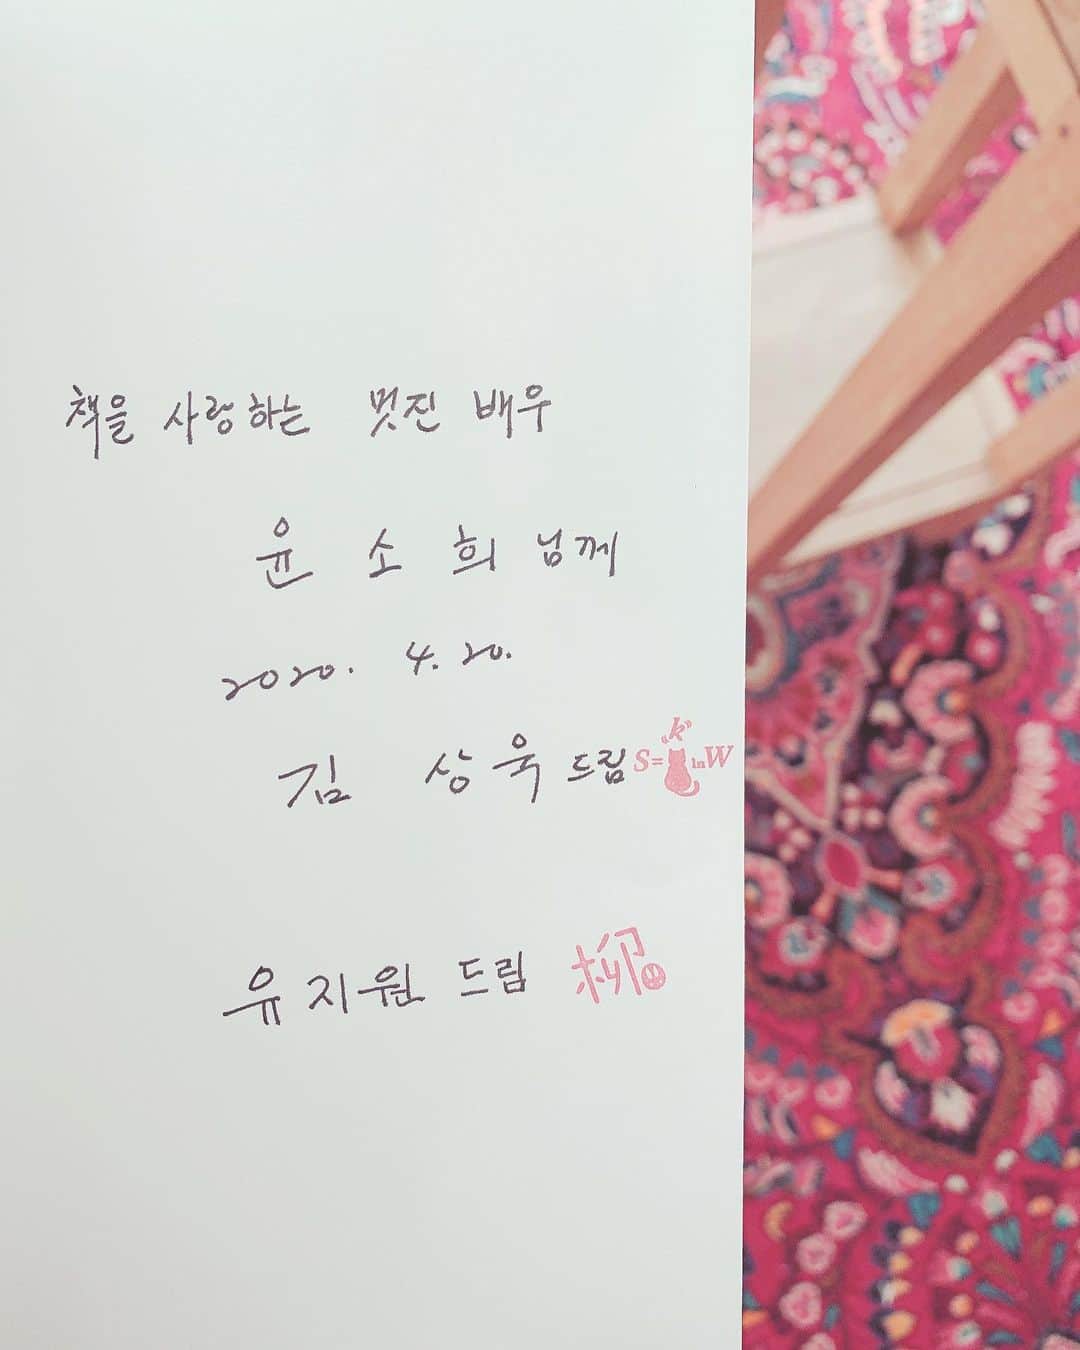 책을 사랑하는 멋진 배우
윤 소 희 님께
2020. 4. 20.
김 상 욱 드림 S=k lnW
유지원 드림 柳